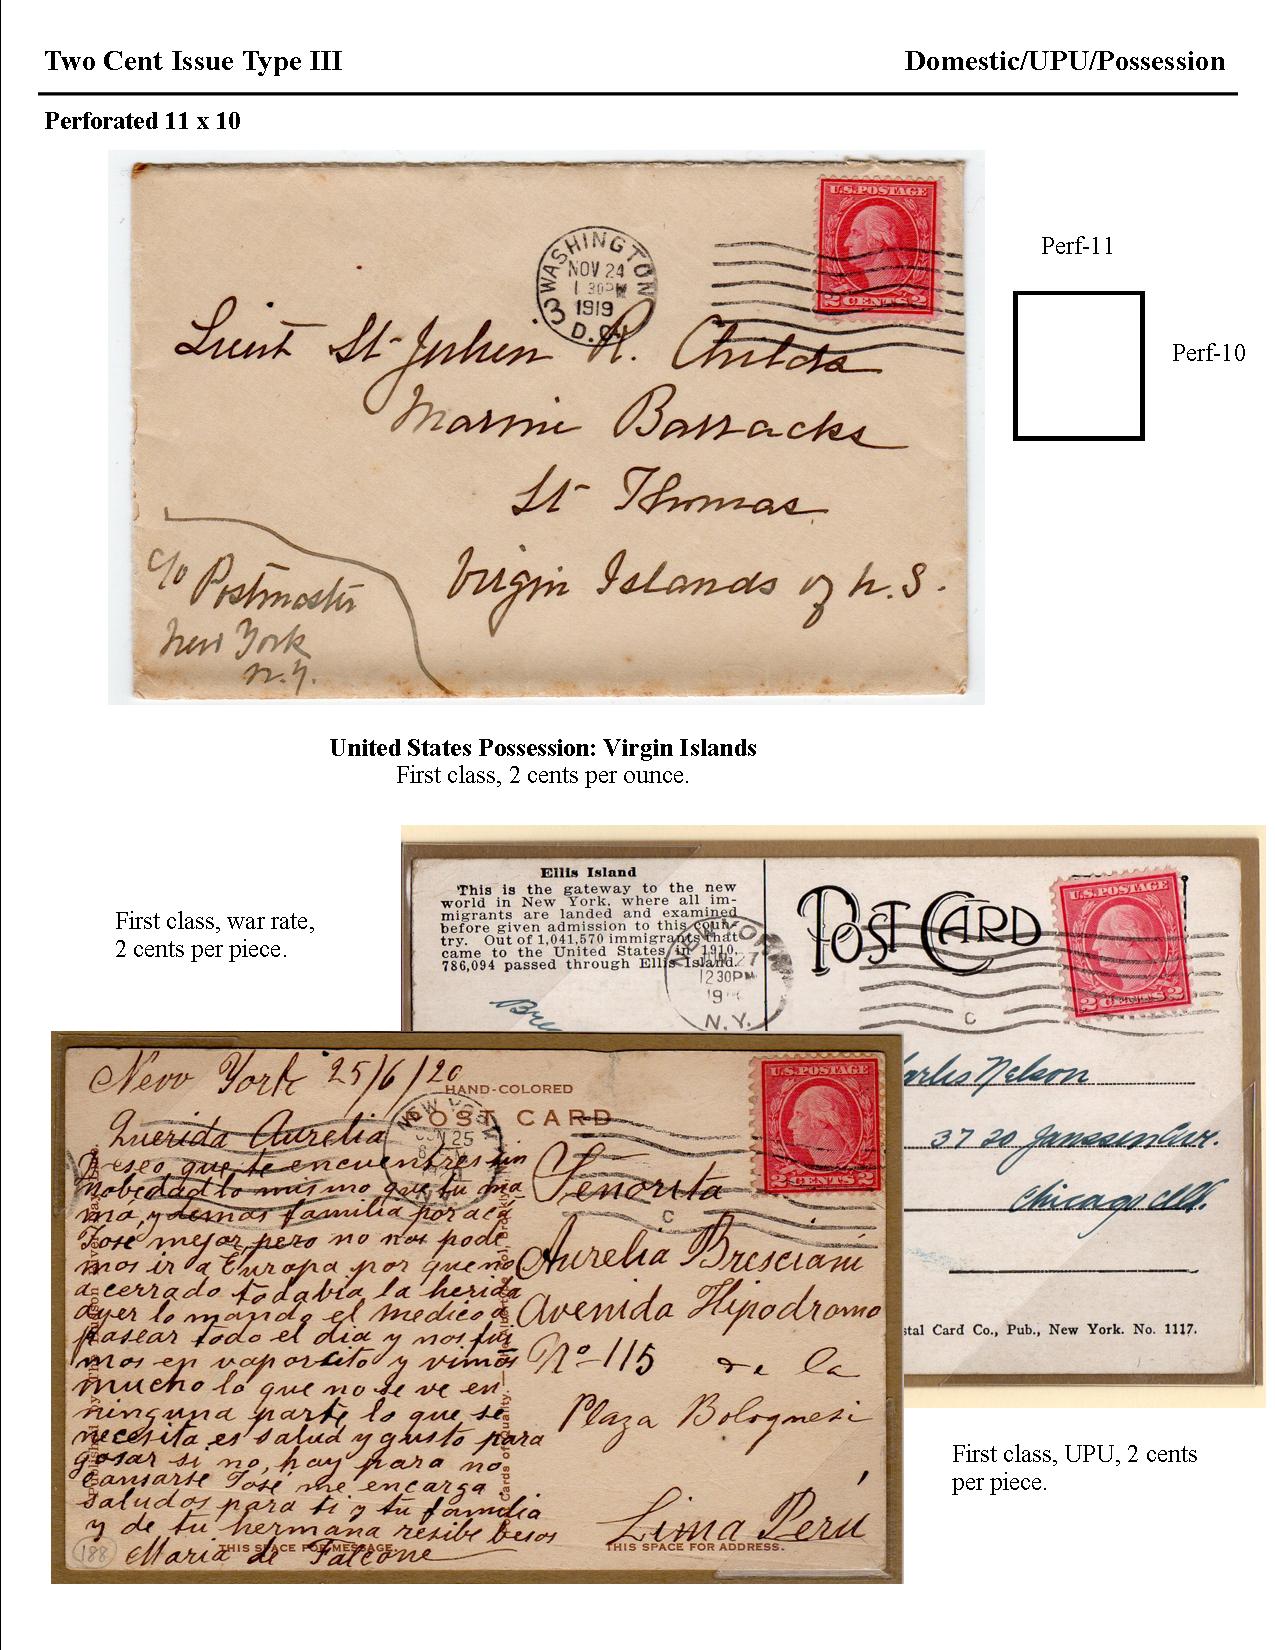 Two Cent Issue Type III
Domestic/UPU/Possession
Perforated 11 x 10
U.S. POSTAGE
2 CENTS 2
WASHINGTON
NOV 24
1 30PM
1919
D.C.
3
Lieut St. Julien R. Childs
Marine Barracks
St Thomas
Virgin Islands of U.S.
c/o Postmaster
New York
N.Y.
Perf-11
Perf-10
United States Possession: Virgin Islands
First class, 2 cents per ounce.
First class, war rate,
2 cents per piece.
Ellis Island
This is the gateway to the new
world in New York, where all im-
migrants are landed and examined
before given admission to this coun-
try. Out of 1,041,570 immigrants that
came to the United States in 1910,
786,094 passed through Ellis Island.
POST CARD
U.S. POSTAGE
2 CENTS 2
NEW YORK
27
12 30PM
N.Y.
C
arles Nelson
3720 Janssen Ave.
Chicago Ills.
stal Card Co., Pub., New York. No. 1117.
New York 25/6/20
HAND-COLORED
POST CARD
U.S. POSTAGE
2 CENTS 2
NEW YORK
JUN 25
C
Querida Aurelia
Deseo que te encuentres sin
nobedad lo mismo que tu ma
ma, y demas familia por aca
José mejor pero no nos pode
mos ir a Europa por que no
a cerrado todabia la herida
ayer lo mando el medico a
pasear todo el dia y nos fui
mos en vaporsito y vimos
mucho lo que no se ve en
ninguna parte lo que se
necesita es salud y gusto para
gosar si no, hay para no
cansarse José me encarga
saludos para ti y tu familia
y de tu hermana resibe besos
Maria de Falcone
THIS SPACE FOR MESSAGE.
188
Señorita
Aurelia Bresciani
Avenida Hipodromo
Nº-115 de la
Plaza Bolognesi
Lima Perú
THIS SPACE FOR ADDRESS.
First class, UPU, 2 cents
per piece.